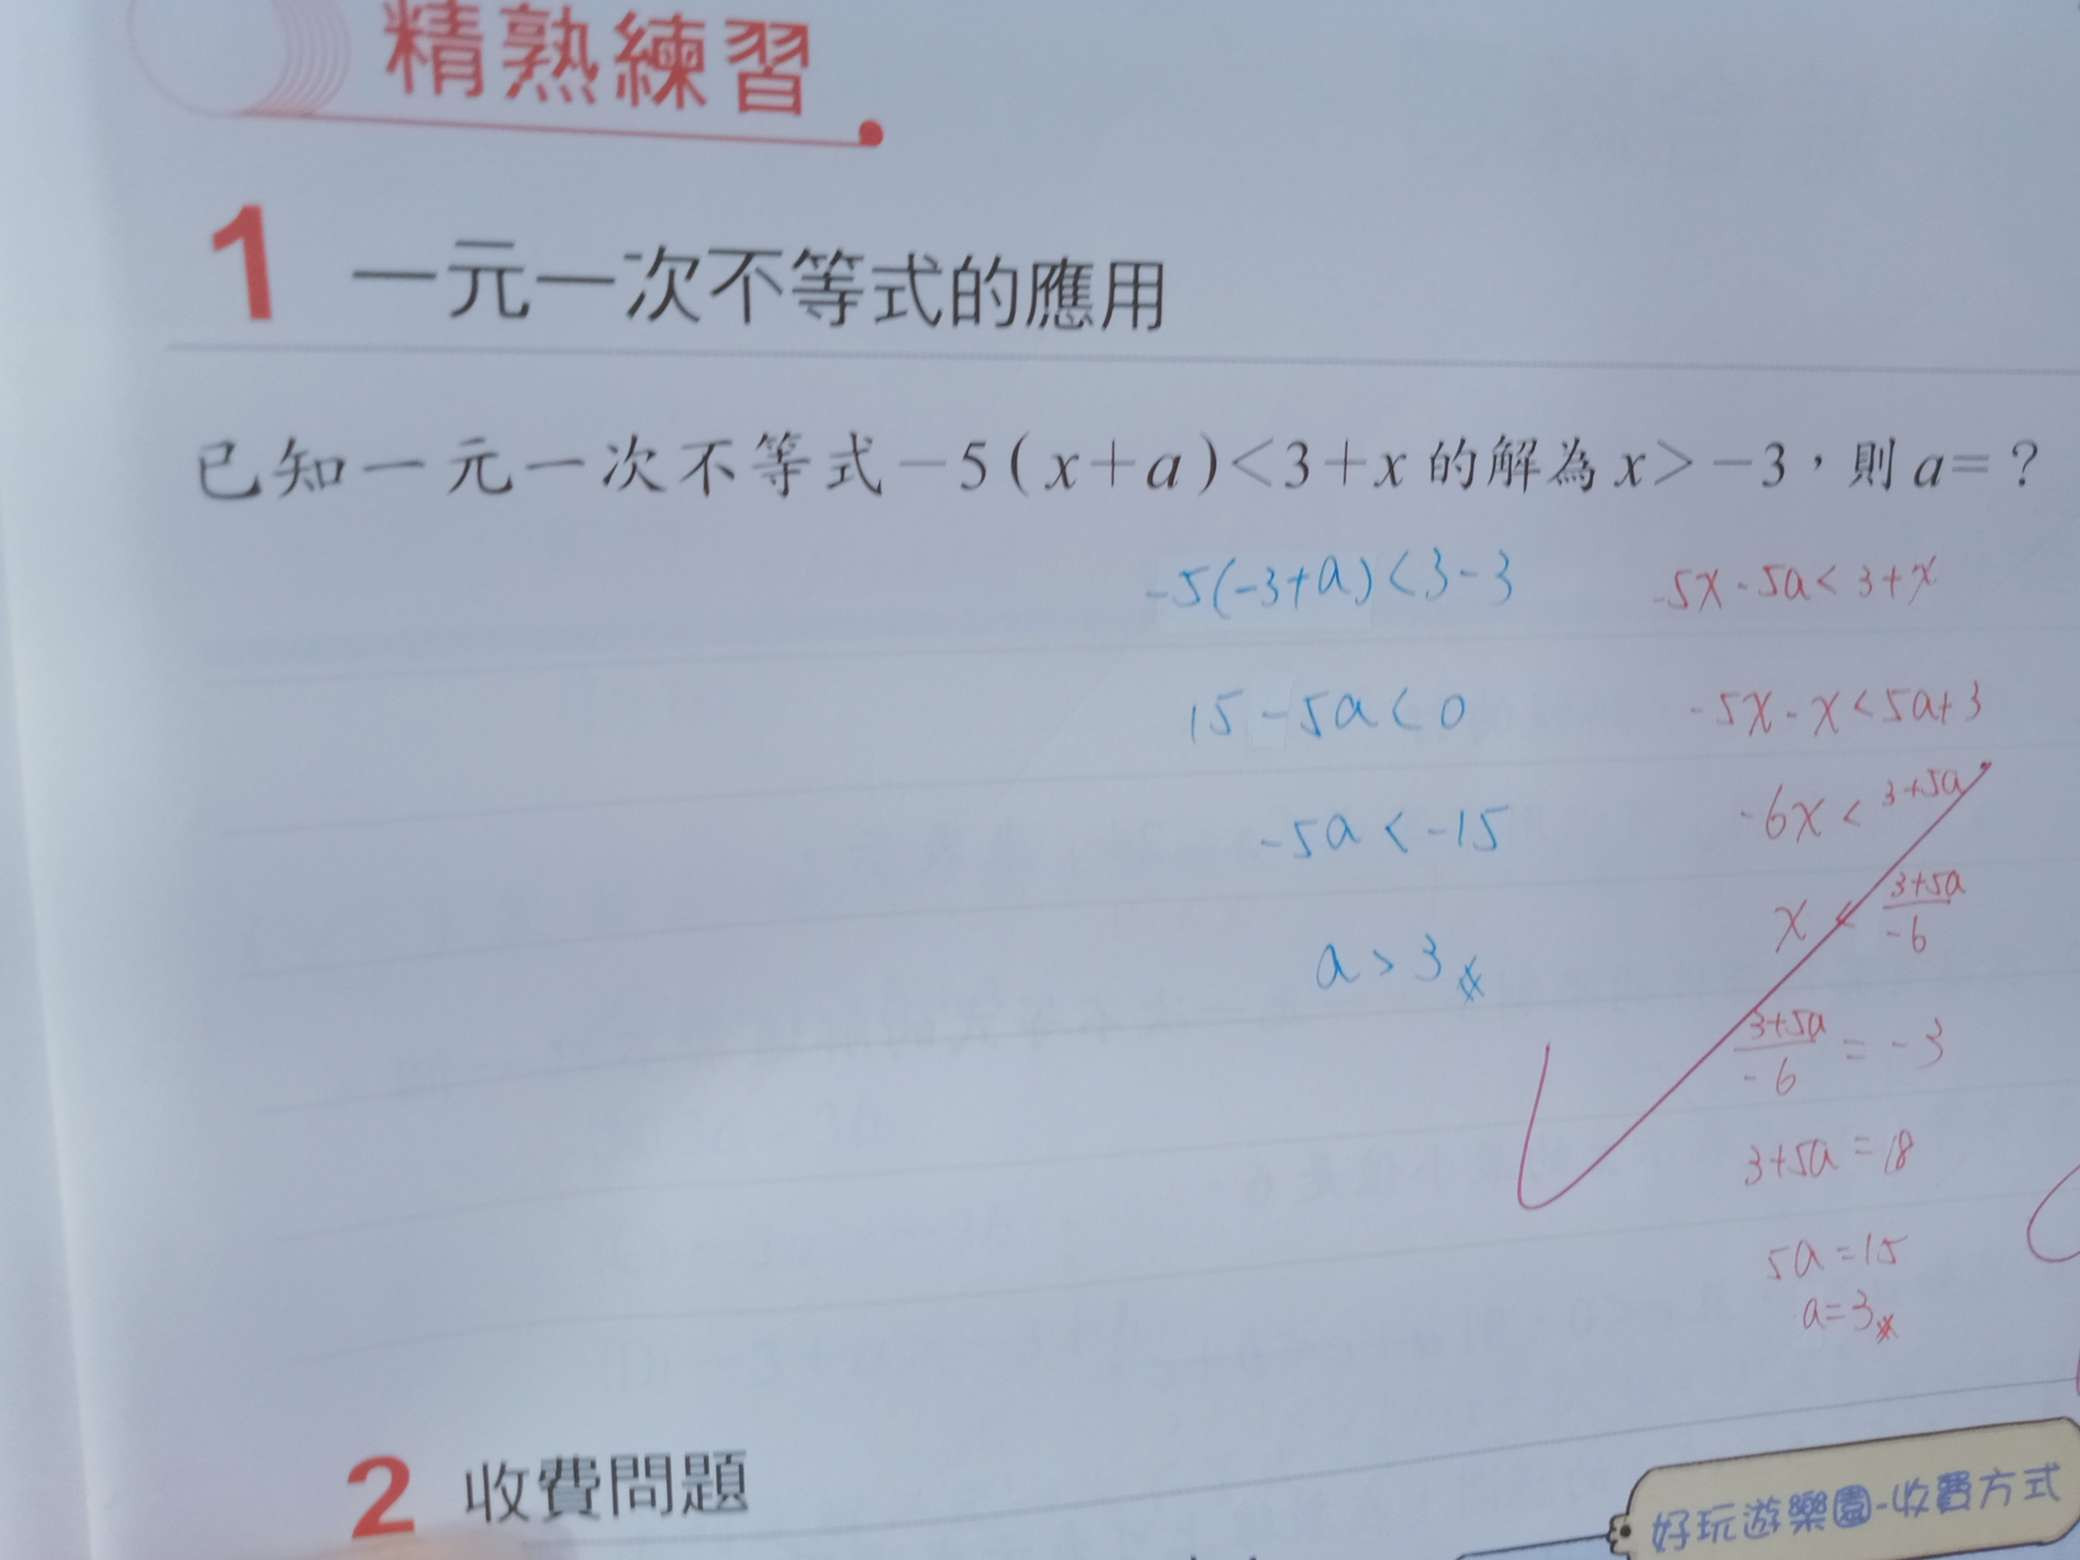 精熟練習
1 一元一次不等式的應用
已知一元一次不等式－5(x＋a)＜3＋x的解為x＞－3，則a＝？
-5(-3+a)<3-3
15-5a<0
-5a<-15
a>3
-5x-5a<3+x
-5x-x<5a+3
-6x<3+5a
x<\frac{3+5a}{-6}
\frac{3+5a}{-6}=-3
3+5a=18
5a=15
a=3
2 收費問題
好玩遊樂園-收費方式